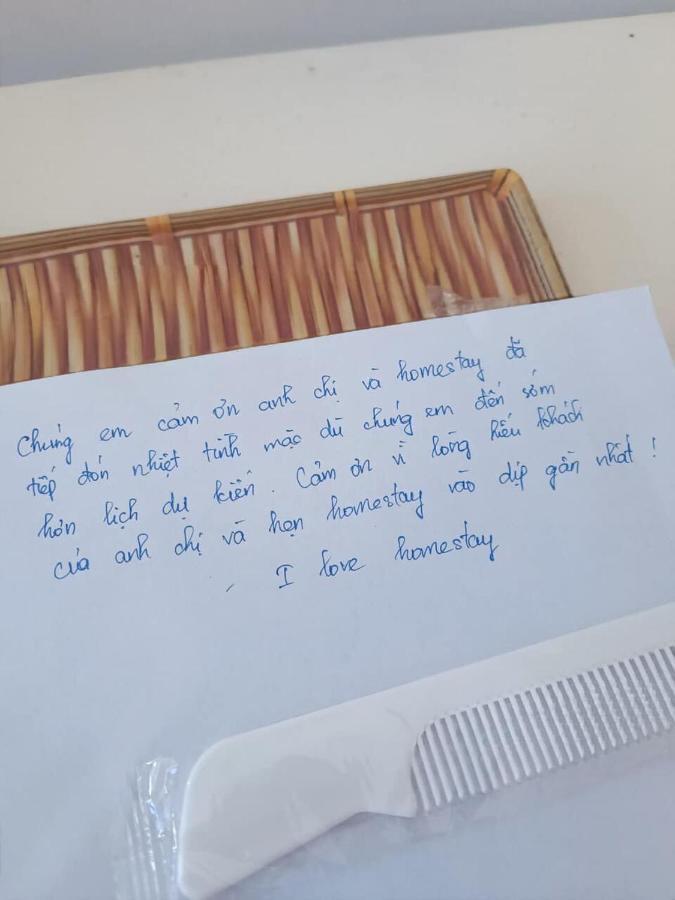 Chúng em cảm ơn anh chị và homestay đã
tiếp đón nhiệt tình mặc dù chúng em đến sớm
hơn lịch dự kiến. Cảm ơn vì lòng hiếu khách
của anh chị và hẹn homestay vào dịp gần nhất!
I love homestay